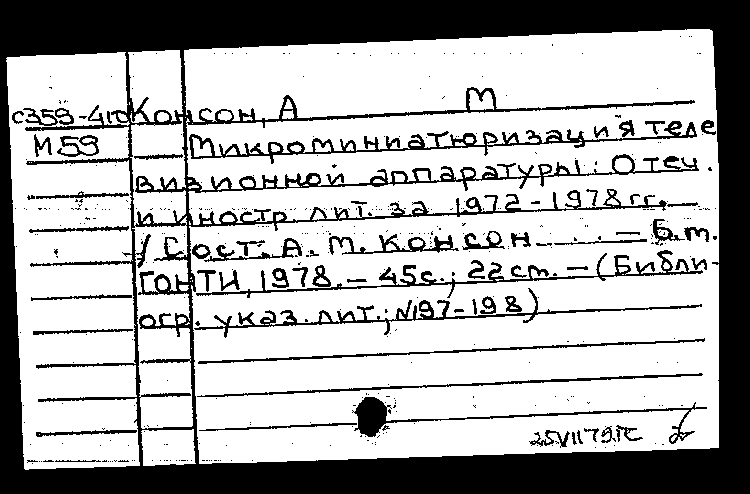 Консон, А М
М59 Микроминиатюризация теле
визионной аппаратуры: Отеч.
и иностр. лит. за 1972-1978 гг.
/ Сост. А. М. Консон. - Б.м.
ГОНТИ, 1978. - 45с.; 22 cm. - (Библи-
огр. указ. лит.; №197-198)